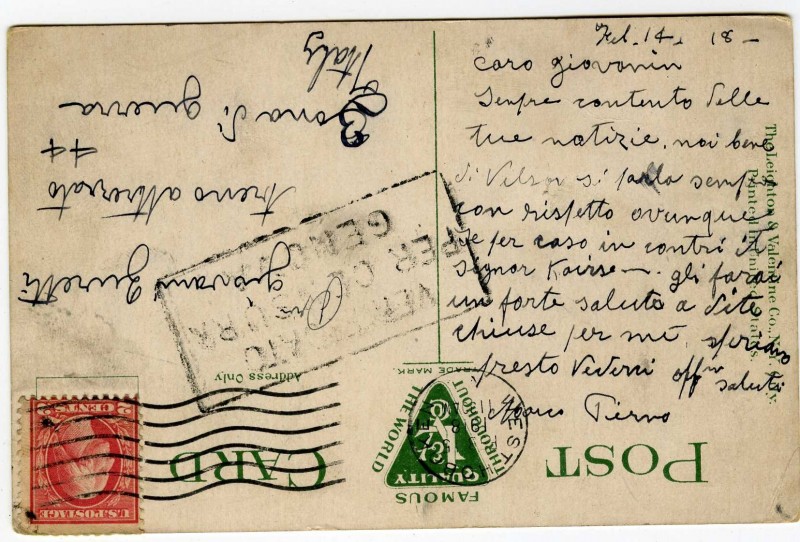 Feb. 14 - 18 -
caro giovanin
Sempre contento delle
tue notizie, noi bene
di Vilson si parla sempre
con rispetto ovunque
se per caso in contri il
Signor gli farai
un forte saluto a dite
chiuse per me, speriamo
presto vederci saluti
Pierno
giovani
treno attrezzato
44
Zona di guerra
Italy
VERIFICATO
PER CENSURA
GENOVA
Address Only
POST CARD
FAMOUS
THROUGHOUT
THE WORLD
QUALITY
TRADE MARK.
The Leighton & Valentine Co., N.Y. City.
Printed in United States.
U.S. POSTAGE
2 CENTS 2